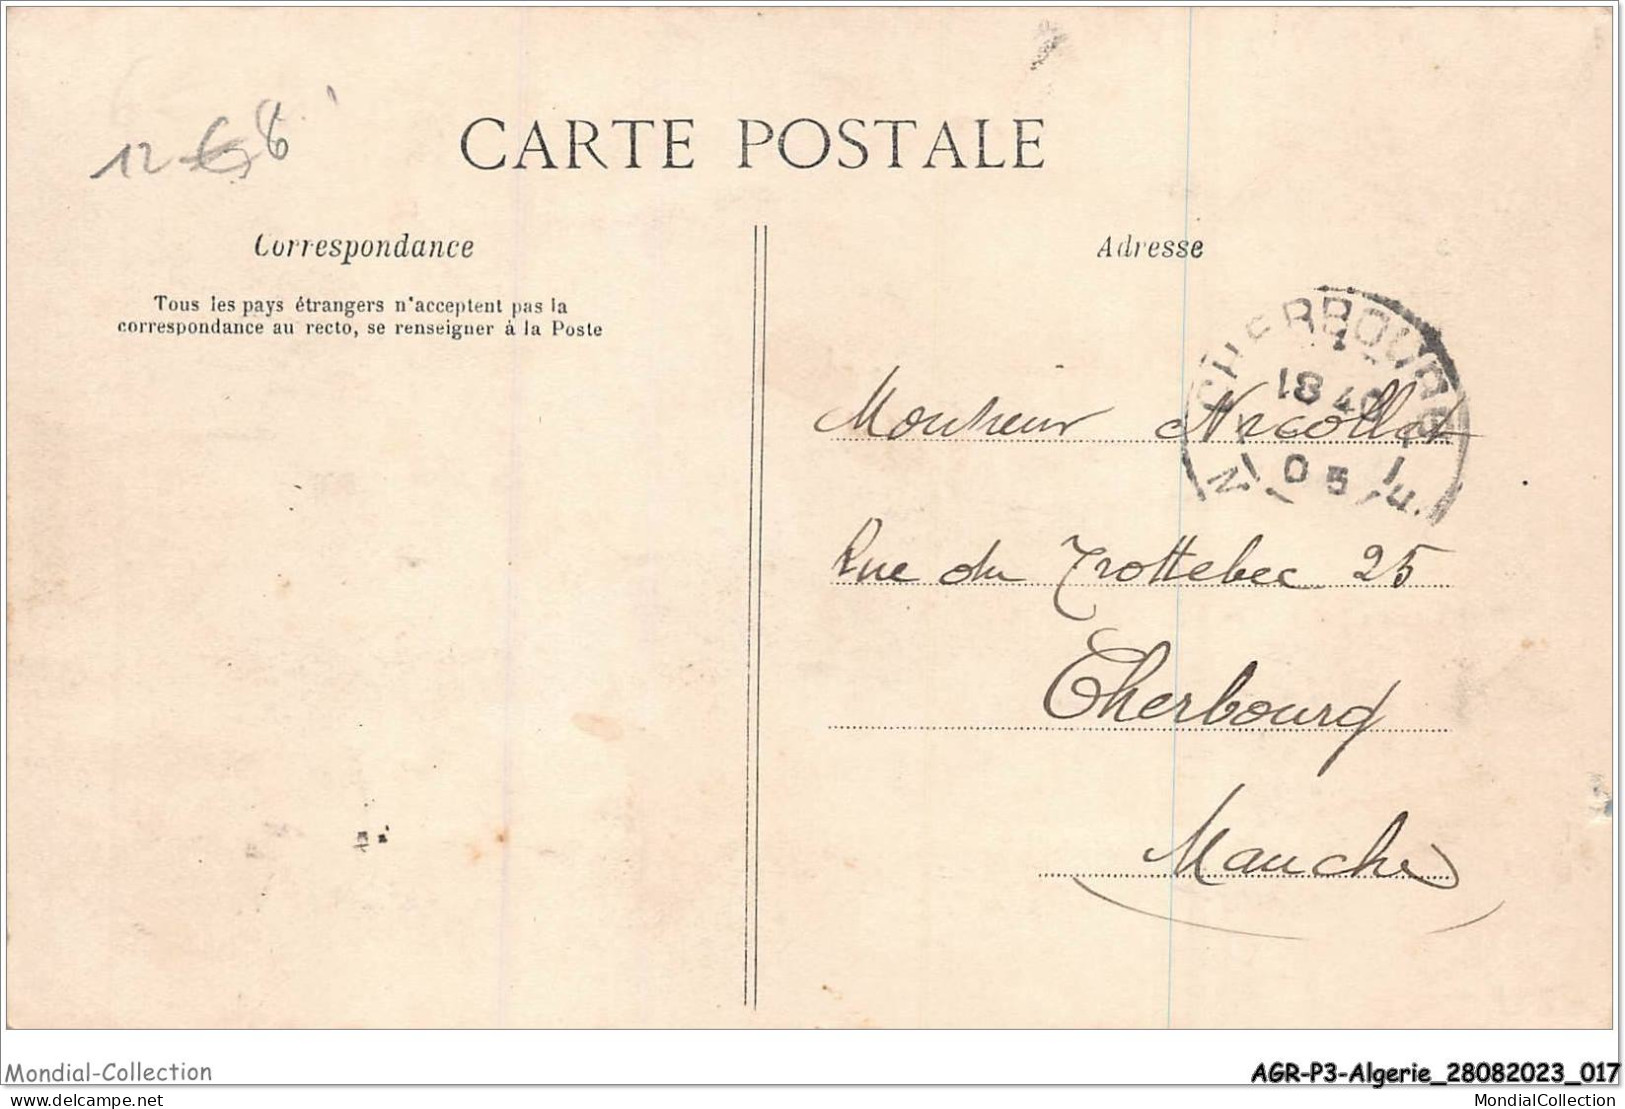 12 € 8
CARTE POSTALE
Correspondance
Tous les pays étrangers n'acceptent pas la
correspondance au recto, se renseigner à la Poste
Adresse
CHERBOURG
18 40
05
Monsieur Nicollet
Rue du Trottebec 25
Cherbourg
Manche
Mondial-Collection
AGR-P3-Algerie_28082023_017
delcampe.net
MondialCollection